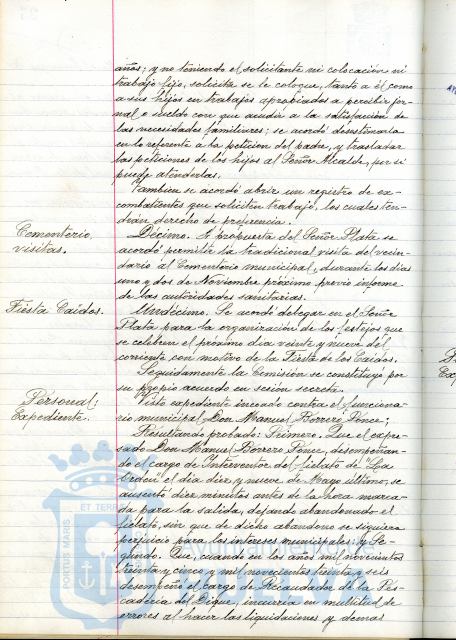 años; y no teniendo el solicitante ni colocación ni
trabajo fijo, solicita se le coloque, tanto a él como
a sus hijos en trabajos apropiados a percibir jor-
nal o sueldo con que acudir a la satisfacción de
las necesidades familiares; se acordó desestimarla
en lo referente a la petición del padre, y trasladar
las peticiones de los hijos al Señor Alcalde, por si
puede atenderlas.
Tambien se acordó abrir un registro de ex-
combatientes que soliciten trabajo, los cuales ten-
drán derecho de preferencia.
Cementerio,
visitas.
Décimo. A propuesta del Señor Plata se
acordó permitir la tradicional visita del vecin-
dario al Cementerio municipal, durante los dias
uno y dos de Noviembre próximo, previo informe
de las autoridades sanitarias.
Fiesta Caídos.
Undécimo. Se acordó delegar en el Señor
Plata para la organización de los festejos que
se celebren el próximo dia veinte y nueve del
corriente con motivo de la Fiesta de los Caidos.
Seguidamente la Comisión se constituyó por
su propio acuerdo en sesión secreta.
Personal;
Expediente.
Visto expediente incoado contra el funciona-
rio municipal Don Manuel Borrero Ponce;
Resultando probado: Primero. Que el expre-
sado Don Manuel Borrero Ponce, desempeñan-
do el cargo de Interventor del fielato de "La
Orden" el dia diez y nueve de Mayo último, se
ausentó diez minutos antes de la hora marca-
da para la salida, dejando abandonado el
fielato, sin que de dicho abandono se siguiera
perjuicio para los intereses municipales: y Se-
gundo. Que, cuando en los años mil novecientos
treinta y cinco y mil novecientos treinta y seis
desempeñó el cargo de Recaudador de la Pes-
cadería del Dique, incurría en multitud de
errores al hacer las liquidaciones y demas
PORTUS MARIS
ET TERRE